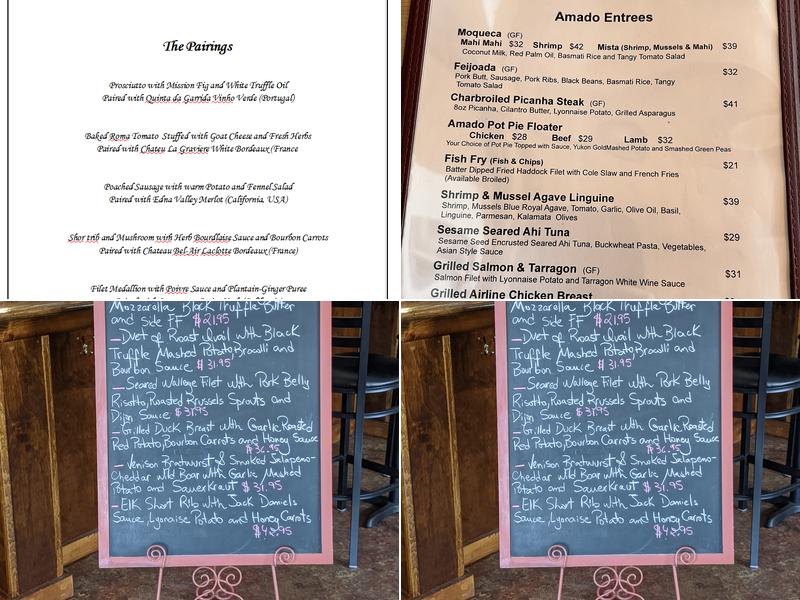 The Pairings
Prosciutto with Mission Fig and White Truffle Oil
Paired with Quinta da Garrida Vinho Verde (Portugal)
Baked Roma Tomato Stuffed with Goat Cheese and Fresh Herbs
Paired with Chateu La Graviere White Bordeaux (France
Poached Sausage with warm Potato and Fennel Salad
Paired with Edna Valley Merlot (California, USA)
Shor trib and Mushroom with Herb Bourdlaise Sauce and Bourbon Carrots
Paired with Chateau Bel-Air Laclotte Bordeaux (France)
Filet Medallion with Poivre Sauce and Plantain-Ginger Puree
Amado Entrees
Moqueca (GF)
Mahi Mahi $32 Shrimp $42 Mista (Shrimp, Mussels & Mahi) $39
Coconut Milk, Red Palm Oil, Basmati Rice and Tangy Tomato Salad
Feijoada (GF) $32
Pork Butt, Sausage, Pork Ribs, Black Beans, Basmati Rice, Tangy
Tomato Salad
Charbroiled Picanha Steak (GF) $41
8oz Picanha, Cilantro Butter, Lyonnaise Potato, Grilled Asparagus
Amado Pot Pie Floater
Chicken $28 Beef $29 Lamb $32
Your Choice of Pot Pie Topped with Sauce, Yukon GoldMashed Potato and Smashed Green Peas
Fish Fry (Fish & Chips) $21
Batter Dipped Fried Haddock Filet with Cole Slaw and French Fries
(Available Broiled)
Shrimp & Mussel Agave Linguine $39
Shrimp, Mussels Blue Royal Agave, Tomato, Garlic, Olive Oil, Basil,
Linguine, Parmesan, Kalamata Olives
Sesame Seared Ahi Tuna $29
Sesame Seed Encrusted Seared Ahi Tuna, Buckwheat Pasta, Vegetables,
Asian Style Sauce
Grilled Salmon & Tarragon (GF) $31
Salmon Filet with Lyonnaise Potato and Tarragon White Wine Sauce
Grilled Airline Chicken Breast
Mozzarella Black Truffle Butter
and side FF $21.95
- Duet of Roast Quail with Black
Truffle Mashed Potato Brocolli and
Bourbon Sauce $31.95
- Seared Walleye Filet with Pork Belly
Risotto, Roasted Brussels Sprouts and
Dijon Sauce $31.95
- Grilled Duck Breast with Garlic Roasted
Red Potato, Bourbon Carrots and Honey Sauce
$36.95
- Venison Bratwurst & Smoked Jalapeno-
Cheddar Wild Boar with Garlic Mashed
Potato and SauerKraut $31.95
- Elk Short Rib with Jack Daniels
Sauce, Lyonaise Potato and Honey Carrots
Mozzarella Black Truffle Butter
and side FF $21.95
- Duet of Roast Quail with Black
Truffle Mashed Potato Brocolli and
Bourbon Sauce $31.95
- Seared Walleye Filet with Pork Belly
Risotto, Roasted Brussels Sprouts and
Dijon Sauce $31.95
- Grilled Duck Breast with Garlic Roasted
Red Potato, Bourbon Carrots and Honey Sauce
$36.95
- Venison Bratwurst & Smoked Jalapeno-
Cheddar Wild Boar with Garlic Mashed
Potato and SauerKraut $31.95
- Elk Short Rib with Jack Daniels
Sauce, Lyonaise Potato and Honey Carrots